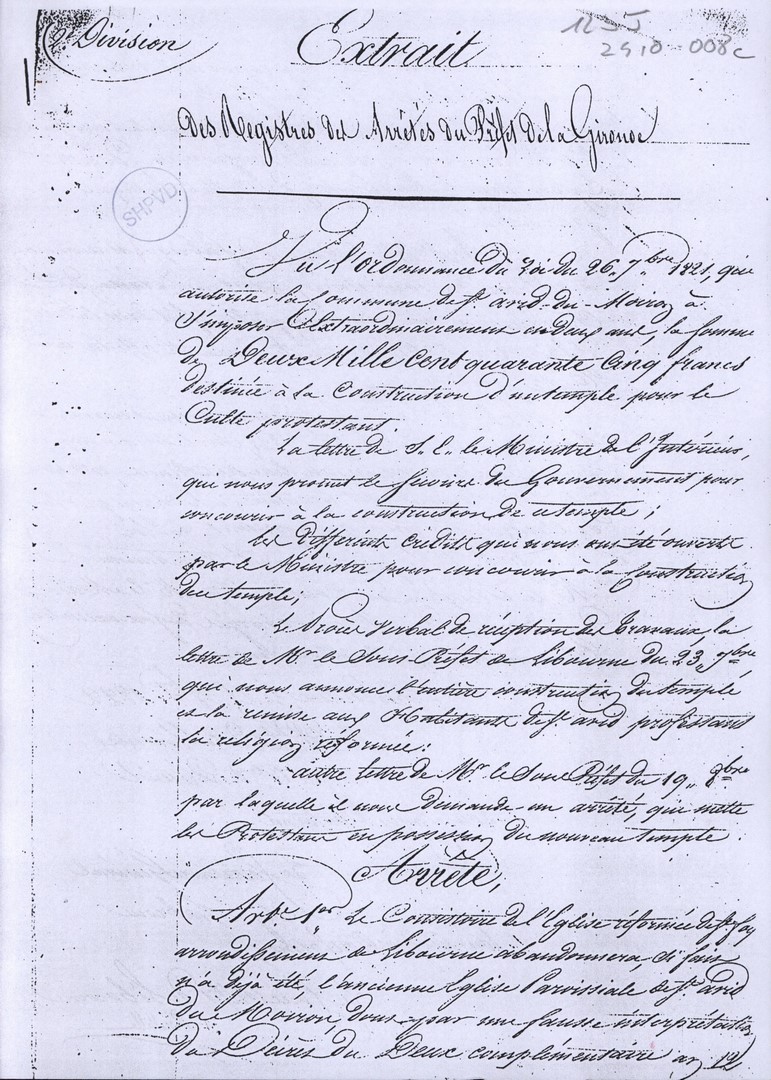 2e Division
Extrait
12 SJ
2910-008c
Des Registres des Arrêtés du Préfet de la Gironde
SHPVD
Vu l'Ordonnance du Roi du 26 7bre 1821, qui
autorise la Commune de St. avid-du-Moiron à
S'imposer Extraordinairement en deux ans, la Somme
de Deux Mille Cent quarante Cinq francs
destinée à la Construction d'un temple pour le
Culte protestant.
La lettre de S. E. le Ministre de l'Intérieur,
que nous promet le secours du Gouvernement pour
concourir à la construction de ce temple;
les différents crédits qui nous ont été ouverts
par le Ministre pour concourir à la Construction
du temple;
Le Procès Verbal de réception des travaux la
lettre de Mr. le Sous Préfet de Libourne du 23 7bre
qui nous annonce l'entière construction du temple
et la remise aux Habitants de St. avid professans
la religion réformée:
autre lettre de Mr. le Sous Préfet du 19 8bre
par laquelle il nous demande un arrêté, qui mette
les Protestans en possession du nouveau temple.
Arrête,
Art. 1er Le Consistoire de l'Eglise réformée de Ste. foy
arrondissement de Libourne abandonnera, si fait
n'a déjà été, l'ancienne Eglise Paroissiale de St. avid
du Moiron, dont par une fausse interprétation
du Décret du Deux complémentaire an 12